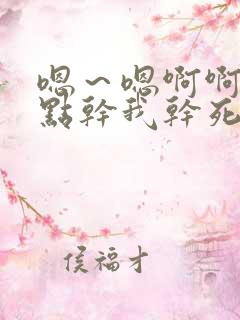 嗯～嗯啊啊
點幹我幹死
侯福才